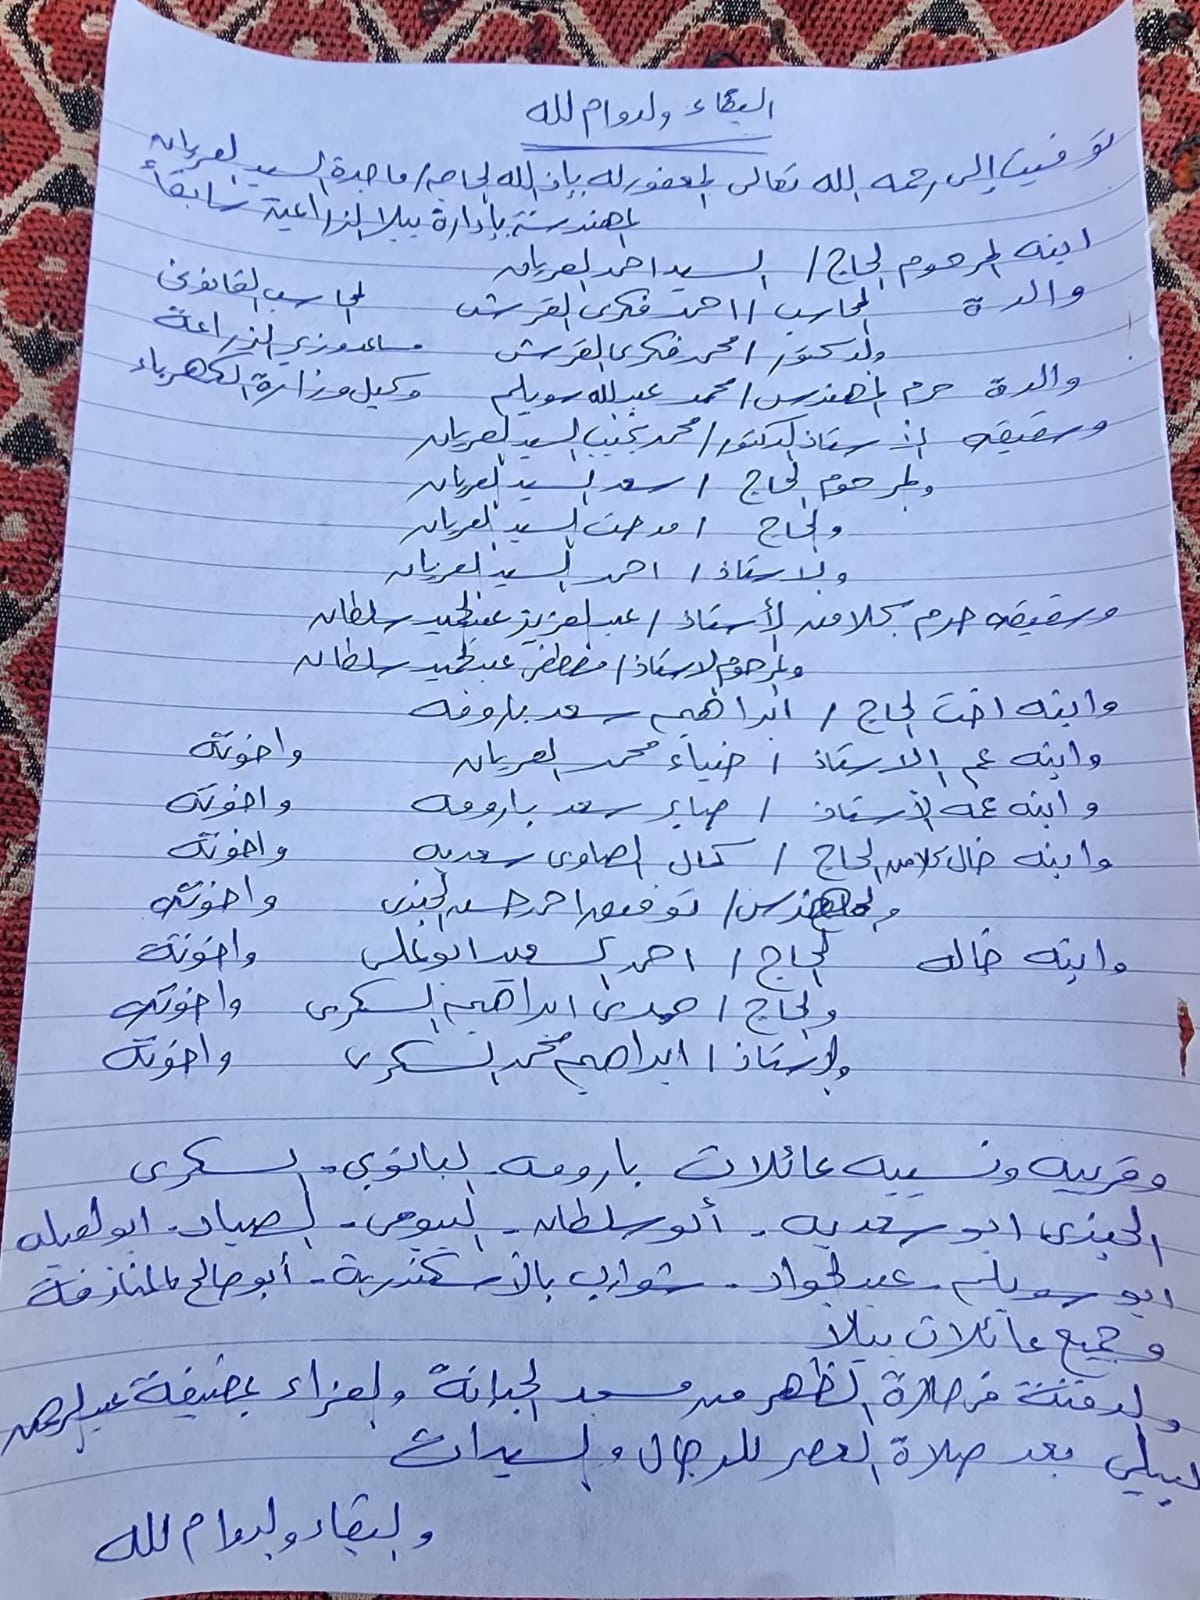 البقاء والدوام لله
توفيت إلى رحمه الله تعالى المغفور له بإذن الله الحاجه/ ماجدة السيد العريان
المهندسة بإدارة بيلا الزراعية سابقاً
ابنه المرحوم الحاج / السيد احمد العريان
والدة المحاسب / احمد فكرى القرش المحاسب القانونى
والدكتور / محمد فكرى القرش مساعد وزير الزراعة
والدة حرم المهندس / محمد عبدالله سويلم وكيل وزارة الكهرباء
وشقيقه الأستاذ الدكتور / محمد نجيب السيد العريان
والمرحوم الحاج / سعد السيد العريان
والحاج / مدحت السيد العريان
والاستاذ / احمد السيد العريان
وشقيقه حرم كلا من الأستاذ / عبد العزيز عبد الحميد سلطان
والمرحوم الاستاذ / مصطفى عبد الحميد سلطان
وابنه اخت الحاج / ابراهيم سعد بارومه
وابنه عم الاستاذ / ضياء محمد العريان واخوته
وابنه عمه الأستاذ / صابر سعد بارومه واخوته
وابنه خال كلا من الحاج / كمال الصاوى سعديه واخوته
والمهندس / توفيق احمد حسن الجندى واخوته
وابنه خاله الحاج / احمد السعيد ابوعلى واخوته
والحاج / حمدى ابراهيم السكرى واخوته
والاستاذ / ابراهيم محمد السكرى واخوته
وقريبه ونسيبه عائلات بارومه - البانوبي - السكرى
الجندى ابو سعديه - أبو سلطان - البيومى - الصياد - ابو
ابو سويلم - عبد الجواد - شوارب بالأسكندرية - أبو صالح
وجميع عائلات بيلا
والدفنة من صلاة الظهر من مسجد الجبانة والعزاء بمضيفة عبد الرحمن
البيلي بعد صلاة العصر للرجال والسيدات
والبقاء والدوام لله